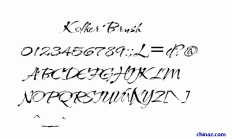 Kolker Brush
0123456789:;L=d?@
ABCDEFGHIJKLM
NOPQRSTUVWXYZ[\]
^_
chinaz.com